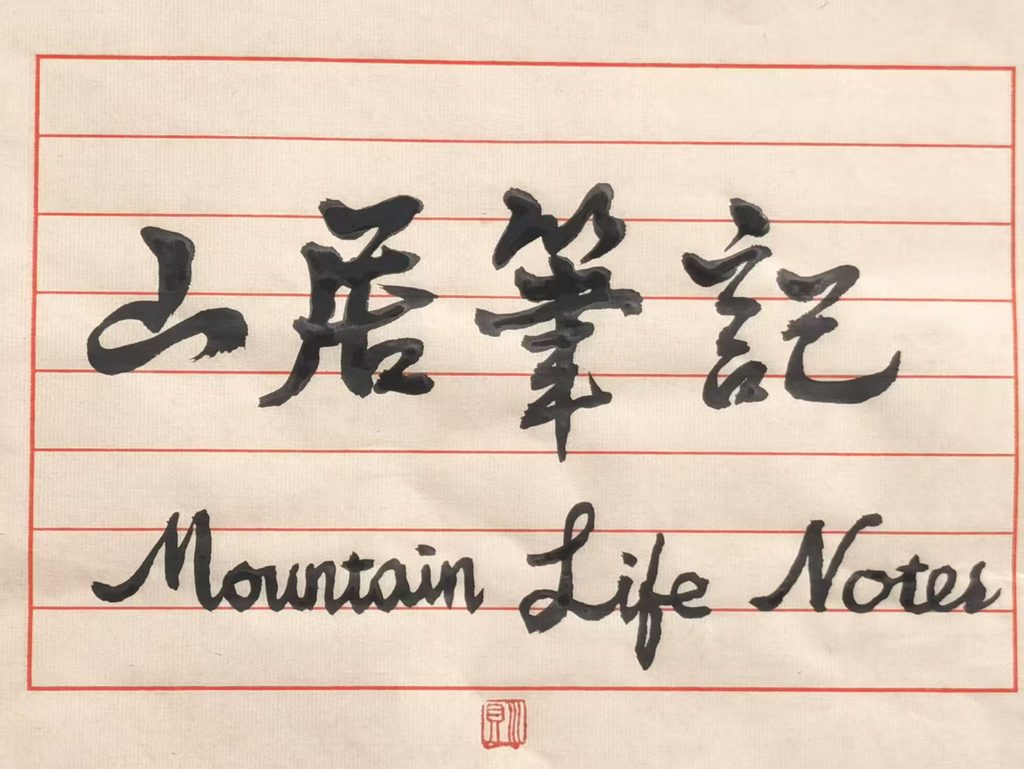 山居筆記
Mountain Life Notes